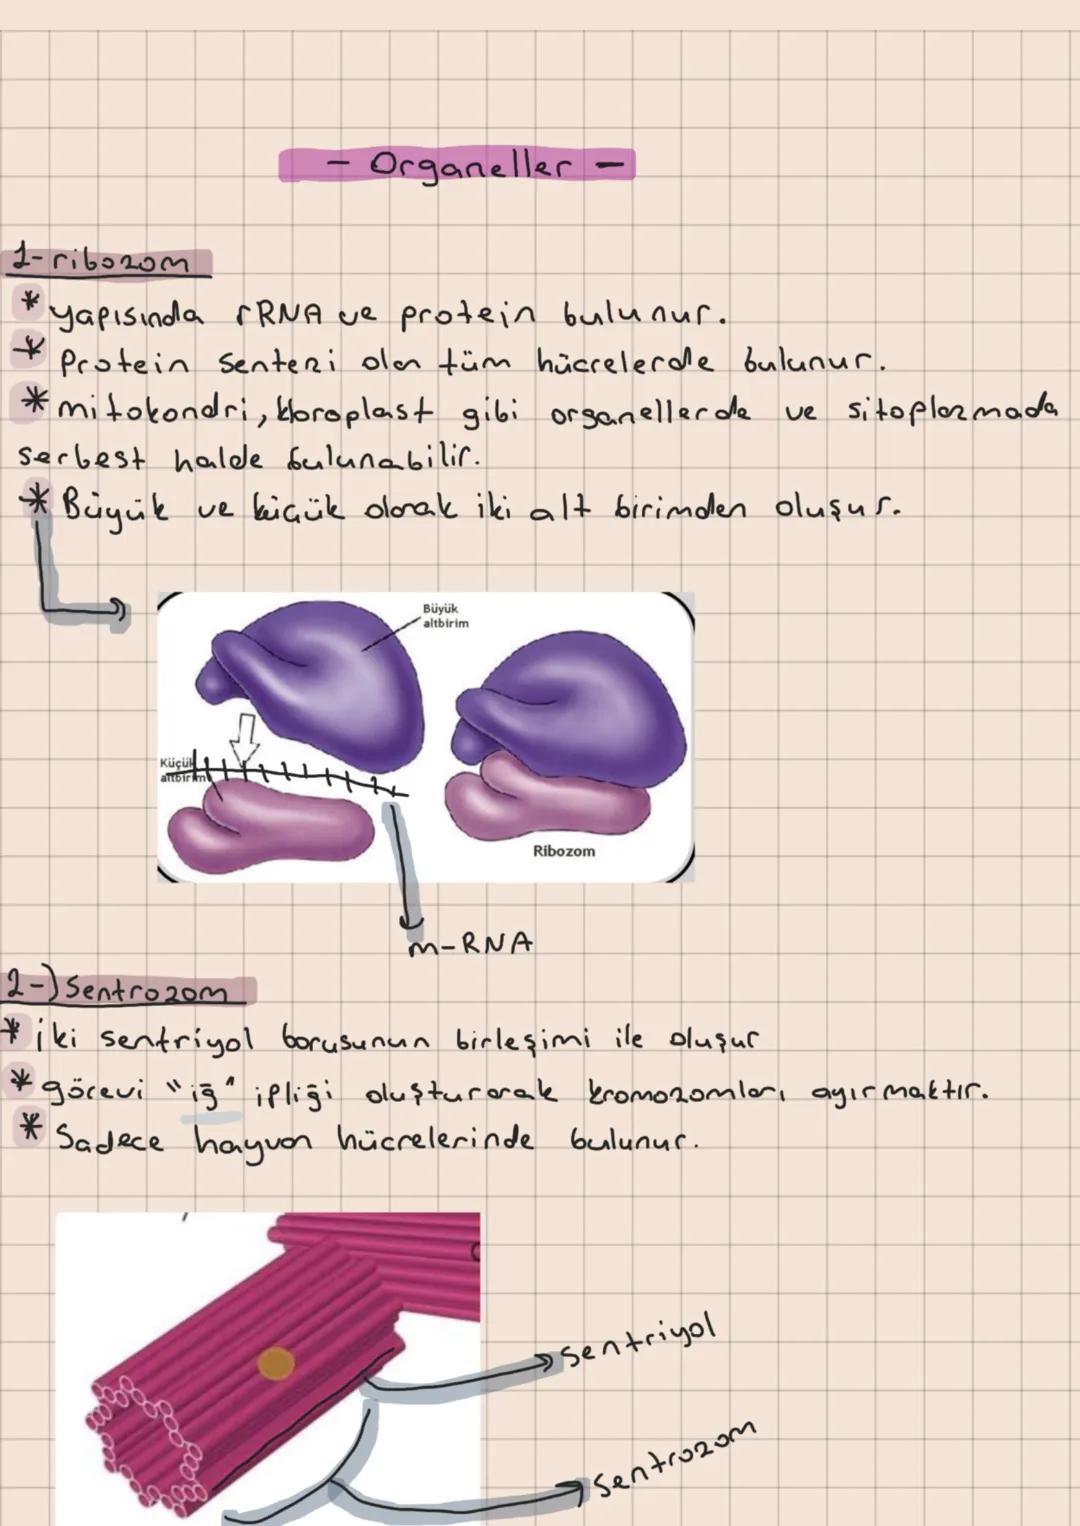 - Organeller -
1-ribozom
* yapısında rRNA ve protein bulunur.
* Protein Sentezi olan tüm hücrelerde bulunur.
* mitokondri, kloroplast gibi organellerde ve sitoplazmada
serbest halde bulunabilir.
* Büyük ve küçük olarak iki alt birimden oluşur.
Büyük
altbirim
Küçük
altbirim
Ribozom
m-RNA
2-) Sentrozom
* iki sentriyol borusunun birleşimi ile oluşur
* görevi "iğ" ipliği oluşturarak kromozomları ayırmaktır.
* Sadece hayvan hücrelerinde bulunur.
Sentriyol
Sentrozom